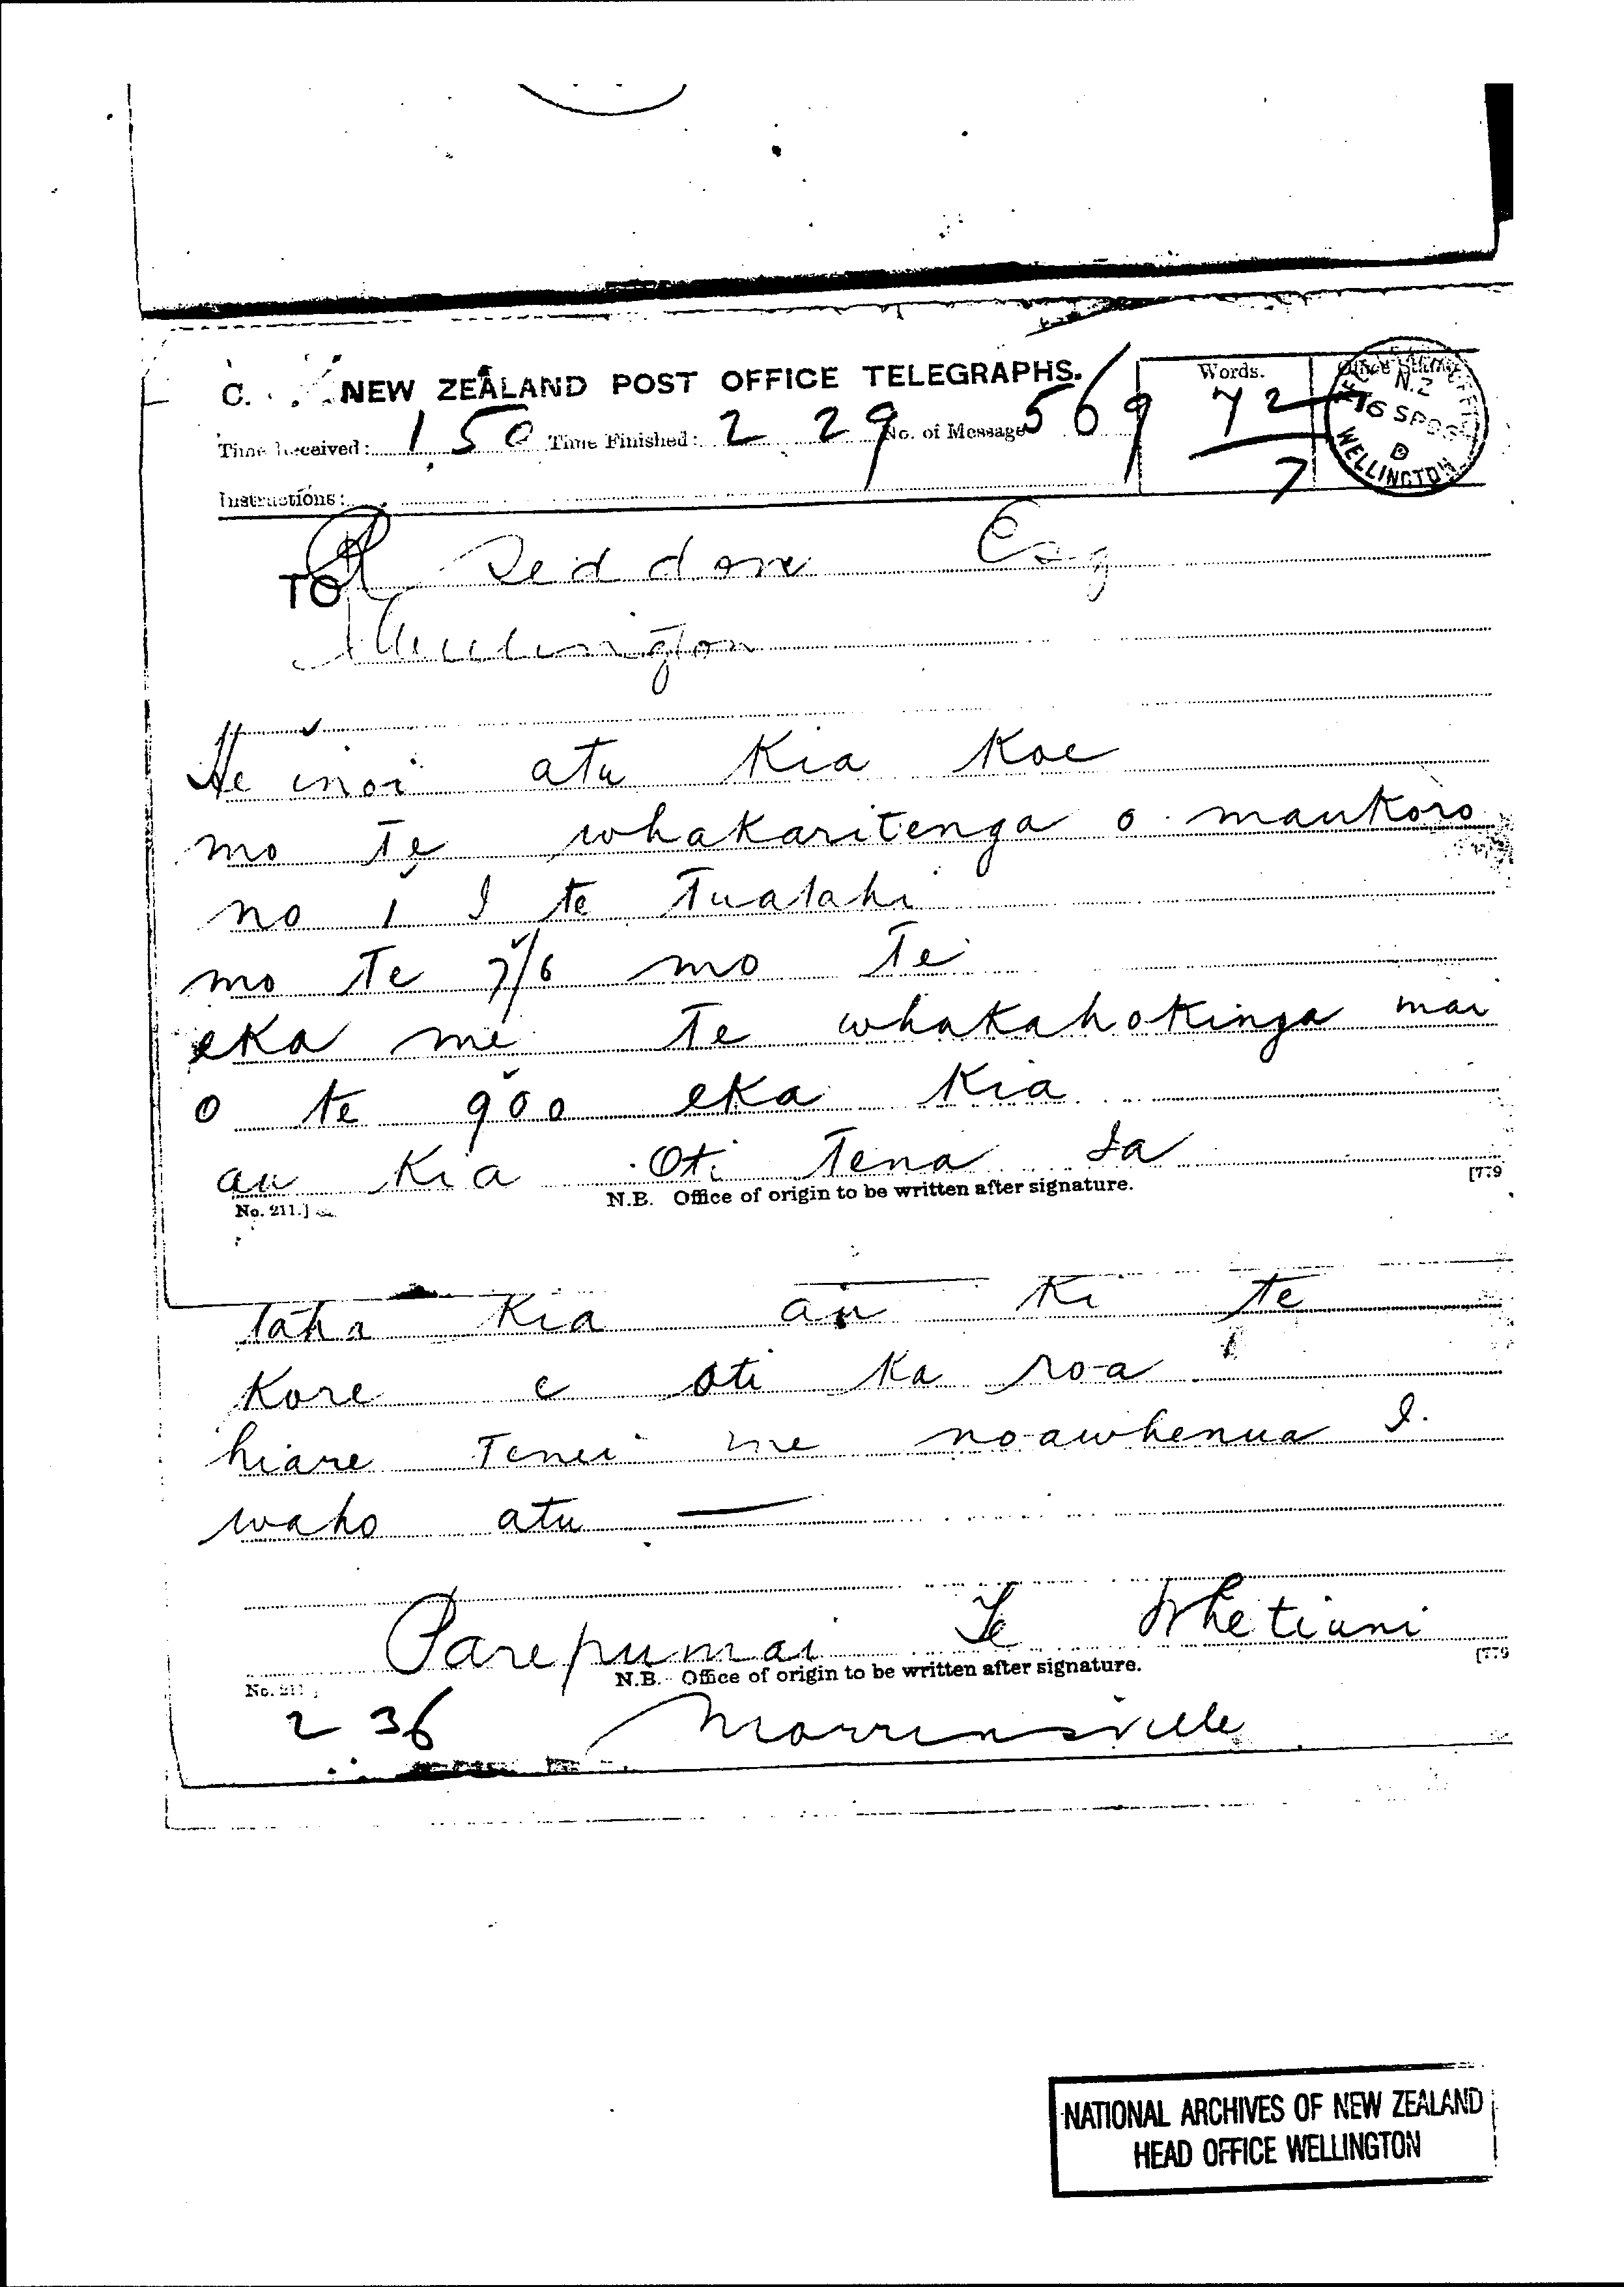 C. NEW ZEALAND POST OFFICE TELEGRAPHS.
Words.
Time Received: 1.50 Time Finished: 2 29 No. of Message 569 72
7
N.Z
16 SP
D
WELLINGTON
Instructions:
TO R Seddon Esq
Wellington
He inoi atu Kia Koe
mo te whakaritenga o maukoro
no 1 I te Tuatahi
mo te 7/6 mo te
eka me te whakahokinga mai
o te 900 eka Kia
au Kia Oti Tena Ta
N.B. Office of origin to be written after signature.
No. 211.]
[779
taha Kia au Ki te
Kore e oti Ka roa
hiare Tenei me noawhenua I.
waho atu —
Parepumai Te Whetiuni
N.B. Office of origin to be written after signature.
No. 211
[779
2 36 Morrinsville
NATIONAL ARCHIVES OF NEW ZEALAND
HEAD OFFICE WELLINGTON